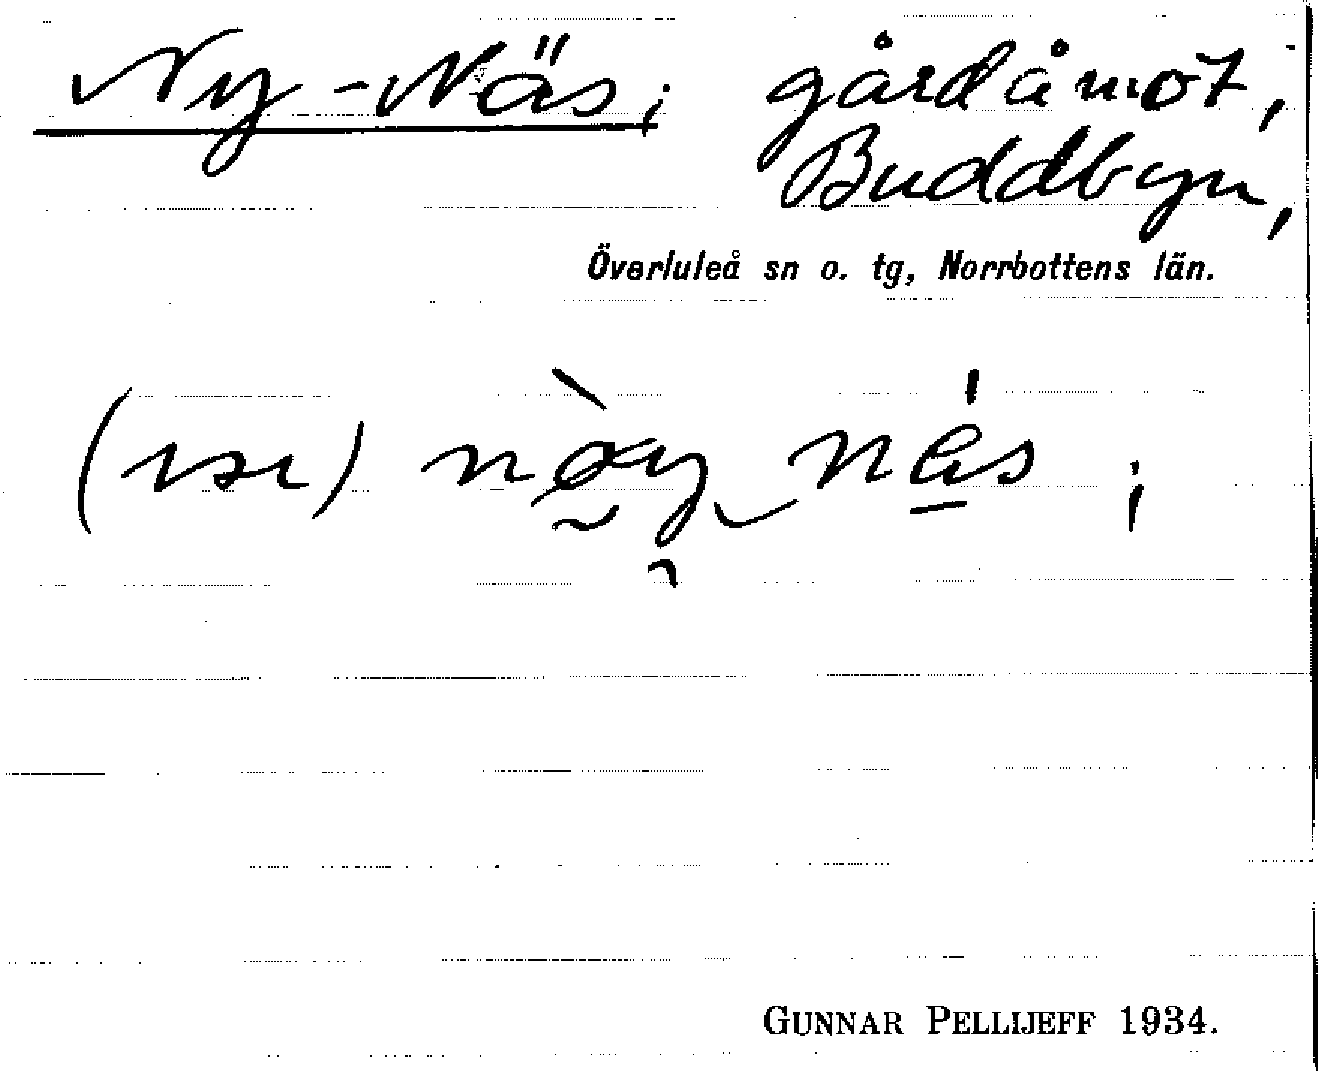 Ny-Näs; gårdåmot,
Buddbyn,
Överluleå sn o. tg, Norrbottens län.
nás ;
GUNNAR PELLIJEFF 1934.